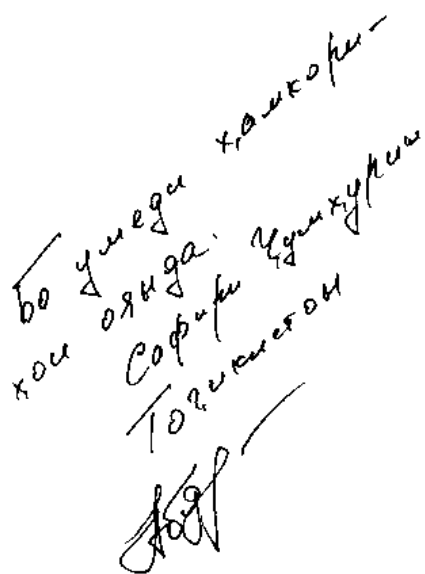 Бо умеди ҳамкори-
ҳои оянда.
Сафири Ҷумҳурии
Тоҷикистон